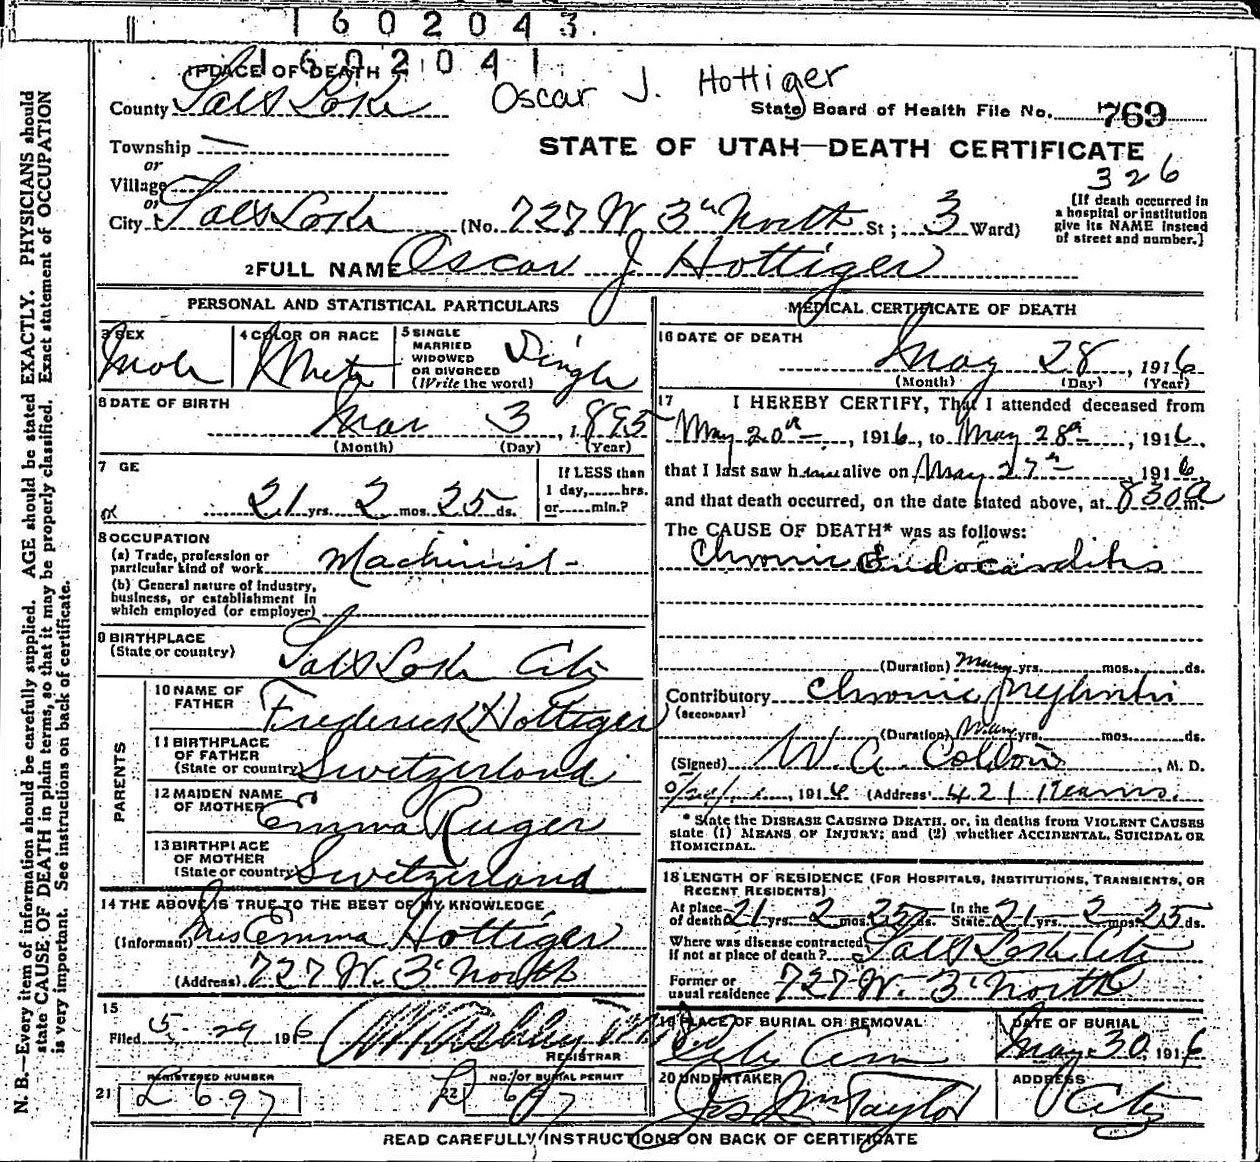 1602043
1602041
1 PLACE OF DEATH
Oscar J. Hottiger
County Salt Lake
State Board of Health File No. 769
Township
STATE OF UTAH—DEATH CERTIFICATE
or
Village
326
or
City Salt Lake (No. 727 W. 3d North St; 3 Ward)
[If death occurred in a hospital or institution give its NAME instead of street and number.]
2 FULL NAME Oscar J Hottiger
PERSONAL AND STATISTICAL PARTICULARS
3 SEX Male
4 COLOR OR RACE White
5 SINGLE MARRIED WIDOWED OR DIVORCED (Write the word) Single
6 DATE OF BIRTH Mar 3, 1895
(Month) (Day) (Year)
7 AGE
21 yrs. 2 mos. 25 ds.
If LESS than 1 day,......hrs. or......min.?
8 OCCUPATION
(a) Trade, profession or particular kind of work Machinist
(b) General nature of industry, business, or establishment in which employed (or employer)
9 BIRTHPLACE (State or country) Salt Lake City
PARENTS
10 NAME OF FATHER Frederick Hottiger
11 BIRTHPLACE OF FATHER (State or country) Switzerland
12 MAIDEN NAME OF MOTHER Emma Ruger
13 BIRTHPLACE OF MOTHER (State or country) Switzerland
14 THE ABOVE IS TRUE TO THE BEST OF MY KNOWLEDGE
(Informant) Mrs Emma Hottiger
(Address) 727 W. 3d North
15
Filed 5-29 1916
REGISTRAR
REGISTERED NUMBER
21 L 697
NO. OF BURIAL PERMIT
22 L 697
MEDICAL CERTIFICATE OF DEATH
16 DATE OF DEATH
May 28, 1916
(Month) (Day) (Year)
17 I HEREBY CERTIFY, That I attended deceased from
May 20th, 1916, to May 28th, 1916,
that I last saw him alive on May 27th 1916
and that death occurred, on the date stated above, at 830 a m.
The CAUSE OF DEATH* was as follows:
Chronic Endocarditis
(Duration) Many yrs. mos. ds.
Contributory Chronic Nephritis
(SECONDARY)
(Duration) Many yrs. mos. ds.
(Signed) W. A. , M. D.
, 1916 (Address) 421 Kearns.
* State the DISEASE CAUSING DEATH, or, in deaths from VIOLENT CAUSES
state (1) MEANS OF INJURY; and (2) whether ACCIDENTAL, SUICIDAL OR
HOMICIDAL.
18 LENGTH OF RESIDENCE (FOR HOSPITALS, INSTITUTIONS, TRANSIENTS, OR
RECENT RESIDENTS)
At place of death 21 yrs. 2 mos. 25 ds. In the State 21 yrs. 2 mos. 25 ds.
Where was disease contracted if not at place of death? Salt Lake City
Former or usual residence 727 W. 3d North
19 PLACE OF BURIAL OR REMOVAL City Cem
DATE OF BURIAL May 30, 1916
20 UNDERTAKER Jos Wm Taylor
ADDRESS City
READ CAREFULLY INSTRUCTIONS ON BACK OF CERTIFICATE
N. B.—Every item of information should be carefully supplied. AGE should be stated EXACTLY. PHYSICIANS should
state CAUSE OF DEATH in plain terms, so that it may be properly classified. Exact statement of OCCUPATION
is very important. See instructions on back of certificate.